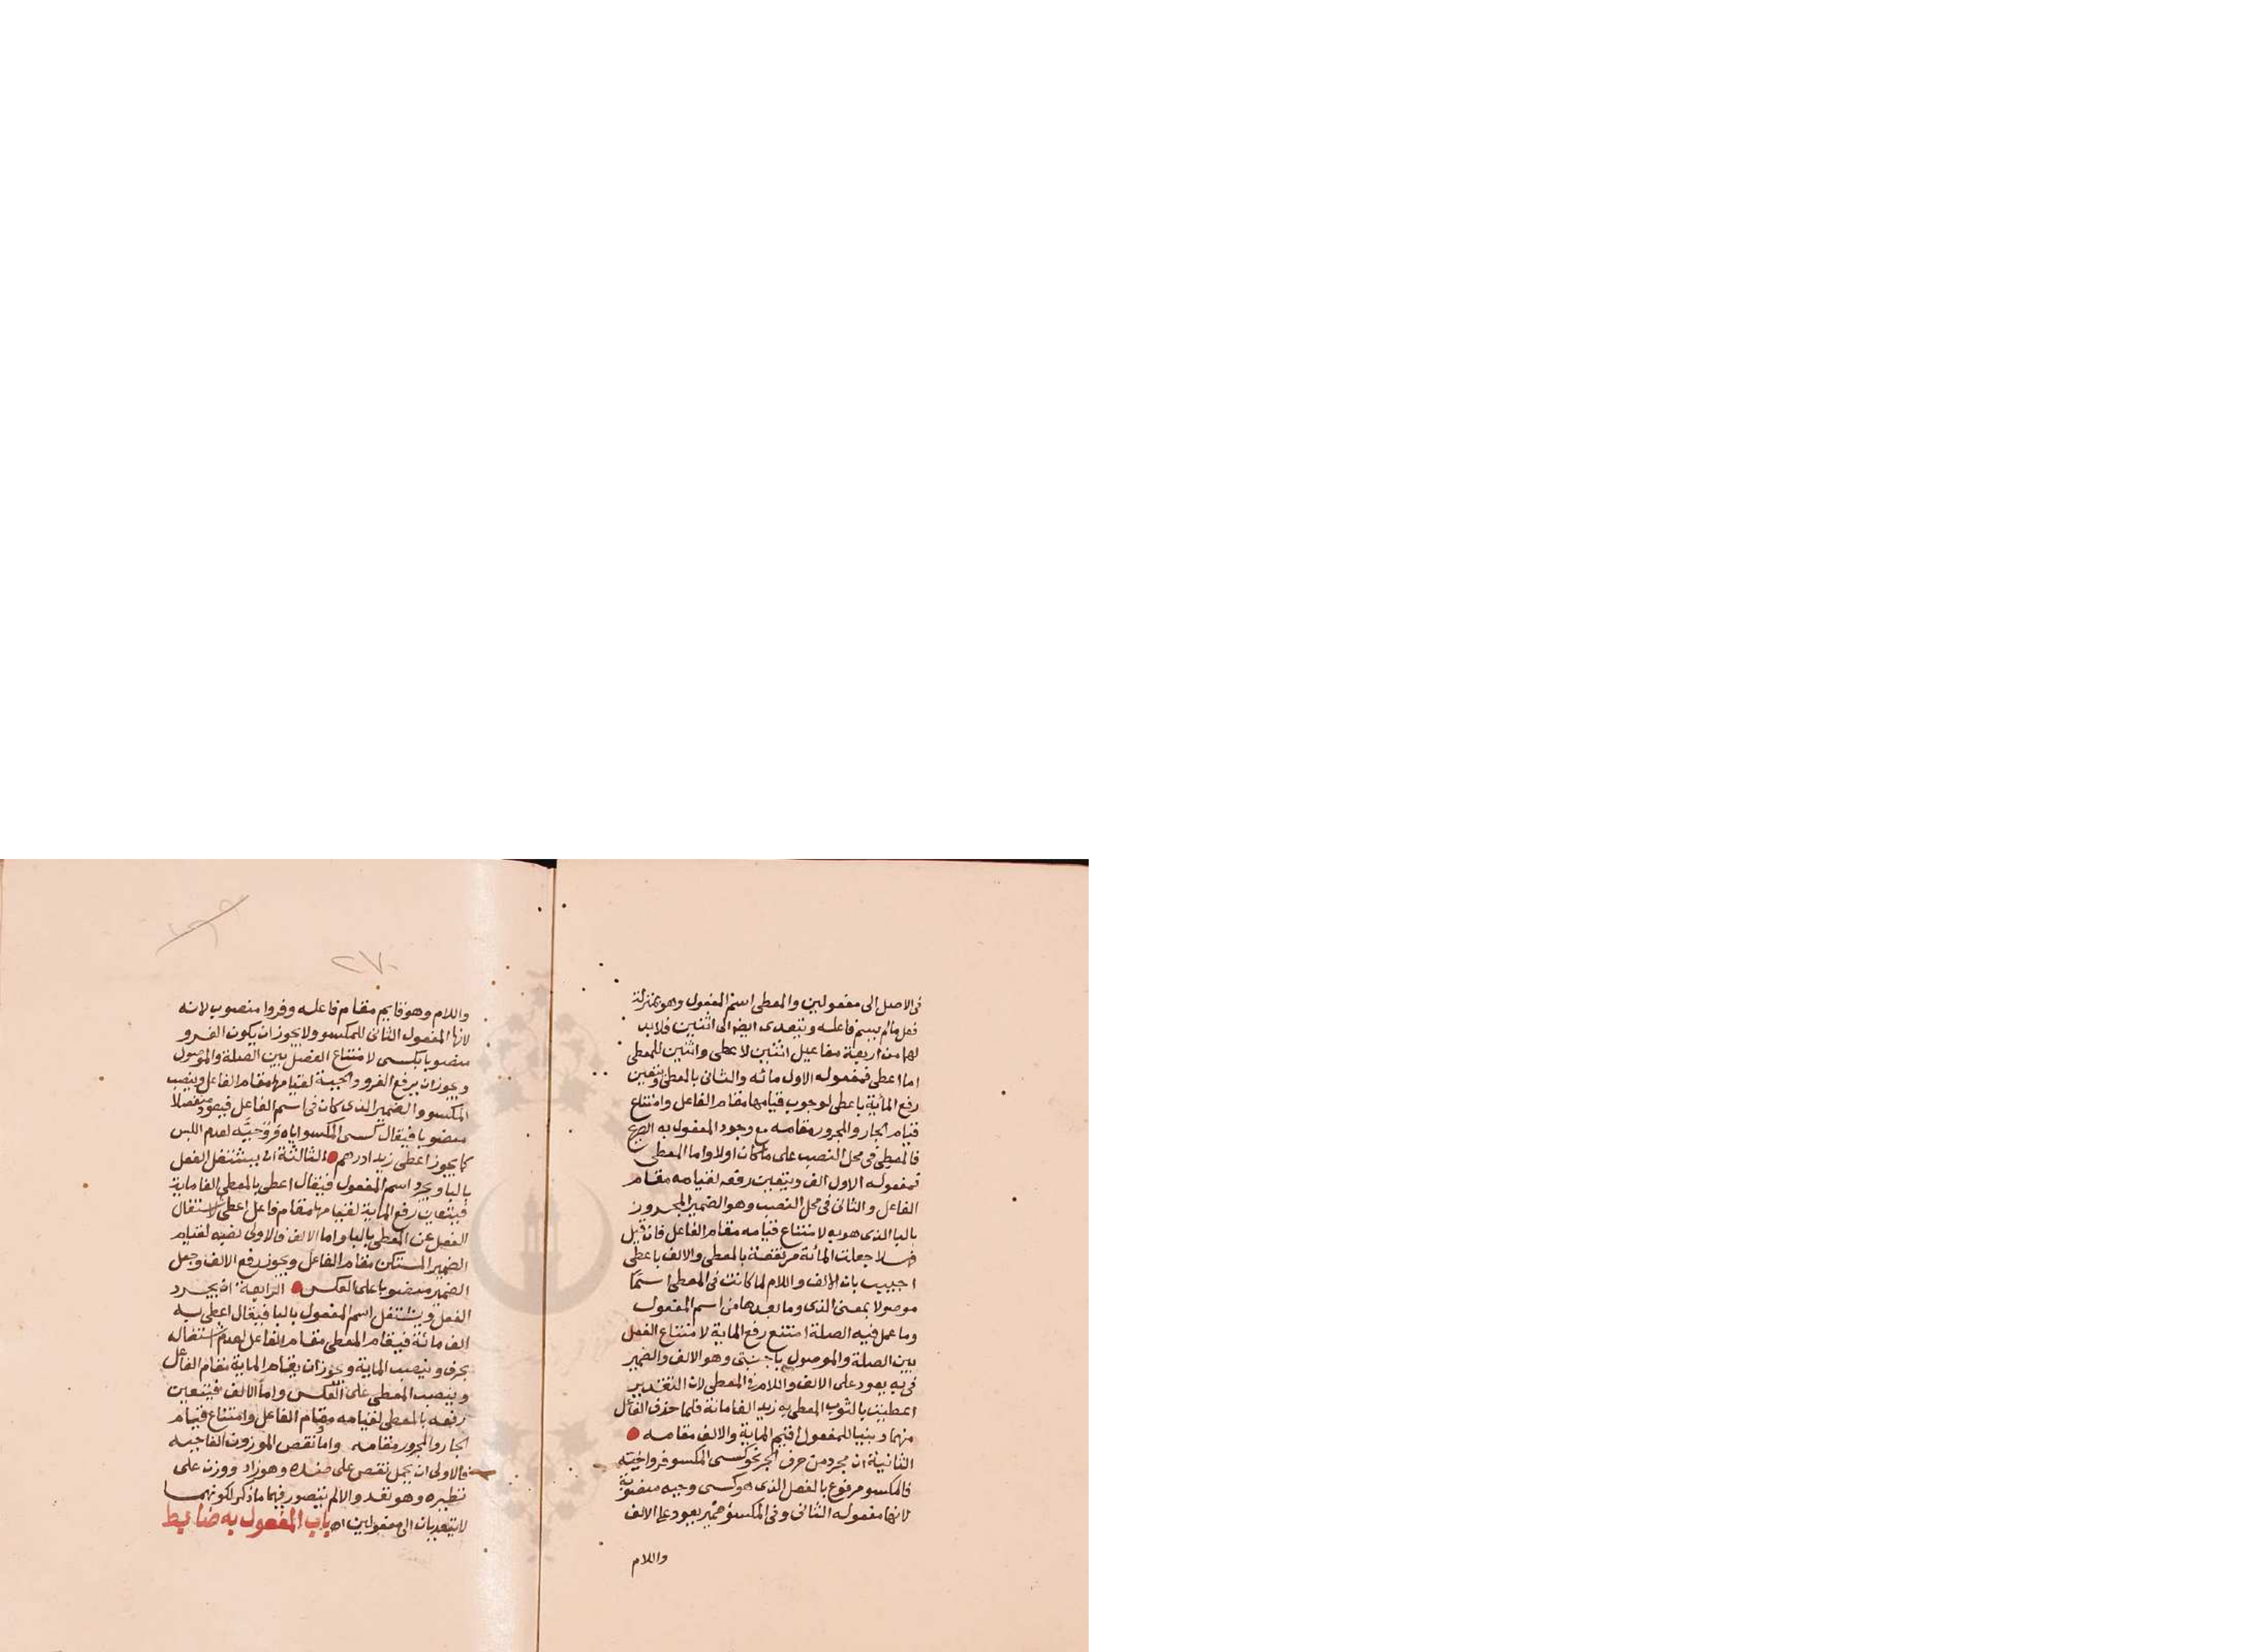 فى الاصل الى مفعولين والمعطى اسم المفعول وهو بمنزلة
فعل مالم يسم فاعله ويتعدى ايضا الى اثنين فلابد
لهما من اربعة مفاعيل اثنين لاعطى واثنين للمعطى
اما اعطى فمفعوله الاول مائه والثانى بالمعطى ويتعين
رفع الماية باعطى لوجوب قيامها مقام الفاعل وامتناع
قيام الجار والمجرور مقامه مع وجود المفعول به الصريح
فالمعطى فى محل النصب على ما كان اولا واما المعطى
فمفعوله الاول الف ويتعين رفعه لقيامه مقام
الفاعل والثانى فى محل النصب وهو الضمير المجرور
بالبا الذى هو به لامتناع قيامه مقام الفاعل فان قيل
هلا جعلت المائة مرتفعة بالمعطى والالف باعطى
اجيب بان الالف واللام لما كانت فى المعطى اسمًا
موصولا بمعنى الذى وما بعدها من اسم المفعول
وما عمل فيه الصلة امتنع رفع الماية لامتناع الفصل
بين الصلة والموصول باجنبى وهو الالف والضمير
فى به يعود على الالف واللام فى المعطى لان التقدير
اعطيت بالثوب المعطى به زيد الفا مائة فلما حذف الفاعل
منهما وبنيا للمفعول اقيم الماية والالف مقامه
الثانية ان مجرد من حرف الجر نحو كسى المكسو فروا جبته
فالمكسو مرفوع بالفعل الذى هو كسى وجبه منصوبة
لانها مفعوله الثانى وفى المكسو ضمير يعود على الالف
واللام
٢٧٠
واللام وهو قايم مقام فاعله وفروا منصوب لانه
لانها المفعول الثانى للمكسو ولا يجوز ان يكون الفرو
منصوبا بكسى لامتناع الفصل بين الصلة والموصول
ويجوز ان يرفع الفرو والجبة لقيامهما مقام الفاعل وينصب
المكسو والضمير الذى كان فى اسم الفاعل فيعود منفصلا
منصوبا فيقال كسى المكسو اياه فرو جبته لعدم اللبس
كما يجوز اعطى زيدا درهم الثالثة ان يشتغل الفعل
بالبا ويجرد اسم المفعول فيقال اعطى بالمعطى الفا ماية
فيتعين رفع الماية لقيامها مقام فاعل اعطى لاشتغال
الفعل عن المعطى بالبا واما الالف فالاولى نصبه لقيام
الضمير المستكن مقام الفاعل ويجوز رفع الالف وجعل
الضمير منصوبا على العكس الرابعة ان يجرد
الفعل ويشتغل اسم المفعول بالبا فيقال اعطى به
الف مائة فيقام المعطى مقام الفاعل لعدم اشتغاله
بحرف وينصب الماية ويجوز ان يقام الماية مقام الفاعل
وينصب المعطى على العكس واما الالف فيتعين
رفعه بالمعطى لقيامه مقام الفاعل وامتناع قيام
الجار والمجرور مقامه واما نقص الموزون الفا حبه
فالاولى ان يحمل نقص على ضده وهو زاد ووزن على
نظيره وهو نقد والا لم يتصور فيهما ما ذكر لكونهما
لا يتعديان الى مفعولين اه باب المفعول به ضابط